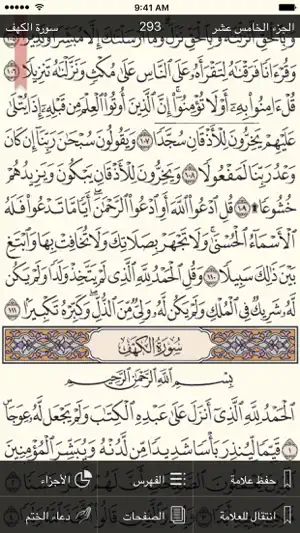 9:41 AM
سورة الكهف 293 الجزء الخامس عشر
وَقُرْءَانًا فَرَقْنَٰهُ لِتَقْرَأَهُۥ عَلَى ٱلنَّاسِ عَلَىٰ مُكْثٍ وَنَزَّلْنَٰهُ تَنزِيلًا ١٠٦
قُلْ ءَامِنُوا۟ بِهِۦٓ أَوْ لَا تُؤْمِنُوٓا۟ إِنَّ ٱلَّذِينَ أُوتُوا۟ ٱلْعِلْمَ مِن قَبْلِهِۦٓ إِذَا يُتْلَىٰ
عَلَيْهِمْ يَخِرُّونَ لِلْأَذْقَانِ سُجَّدًا ١٠٧ وَيَقُولُونَ سُبْحَٰنَ رَبِّنَآ إِن كَانَ
وَعْدُ رَبِّنَا لَمَفْعُولًا ١٠٨ وَيَخِرُّونَ لِلْأَذْقَانِ يَبْكُونَ وَيَزِيدُهُمْ
خُشُوعًا ١٠٩ قُلِ ٱدْعُوا۟ ٱللَّهَ أَوِ ٱدْعُوا۟ ٱلرَّحْمَٰنَ أَيًّا مَّا تَدْعُوا۟ فَلَهُ
ٱلْأَسْمَآءُ ٱلْحُسْنَىٰ وَلَا تَجْهَرْ بِصَلَاتِكَ وَلَا تُخَافِتْ بِهَا وَٱبْتَغِ
بَيْنَ ذَٰلِكَ سَبِيلًا ١١٠ وَقُلِ ٱلْحَمْدُ لِلَّهِ ٱلَّذِى لَمْ يَتَّخِذْ وَلَدًا وَلَمْ يَكُن
لَّهُۥ شَرِيكٌ فِى ٱلْمُلْكِ وَلَمْ يَكُن لَّهُۥ وَلِىٌّ مِّنَ ٱلذُّلِّ وَكَبِّرْهُ تَكْبِيرًۢا ١١١
سُورَةُ الكَهْفِ
بِسْمِ ٱللَّهِ ٱلرَّحْمَٰنِ ٱلرَّحِيمِ
ٱلْحَمْدُ لِلَّهِ ٱلَّذِىٓ أَنزَلَ عَلَىٰ عَبْدِهِ ٱلْكِتَٰبَ وَلَمْ يَجْعَل لَّهُۥ عِوَجَا ١
قَيِّمًا لِّيُنذِرَ بَأْسًا شَدِيدًا مِّن لَّدُنْهُ وَيُبَشِّرَ ٱلْمُؤْمِنِينَ
حفظ علامة الفهرس الأجزاء
انتقال للعلامة الصفحات دعاء الختم